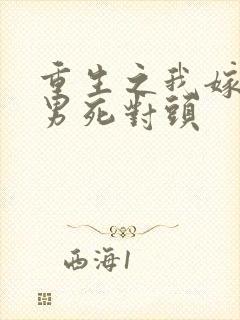 重生之我嫁
男死對頭
西海1